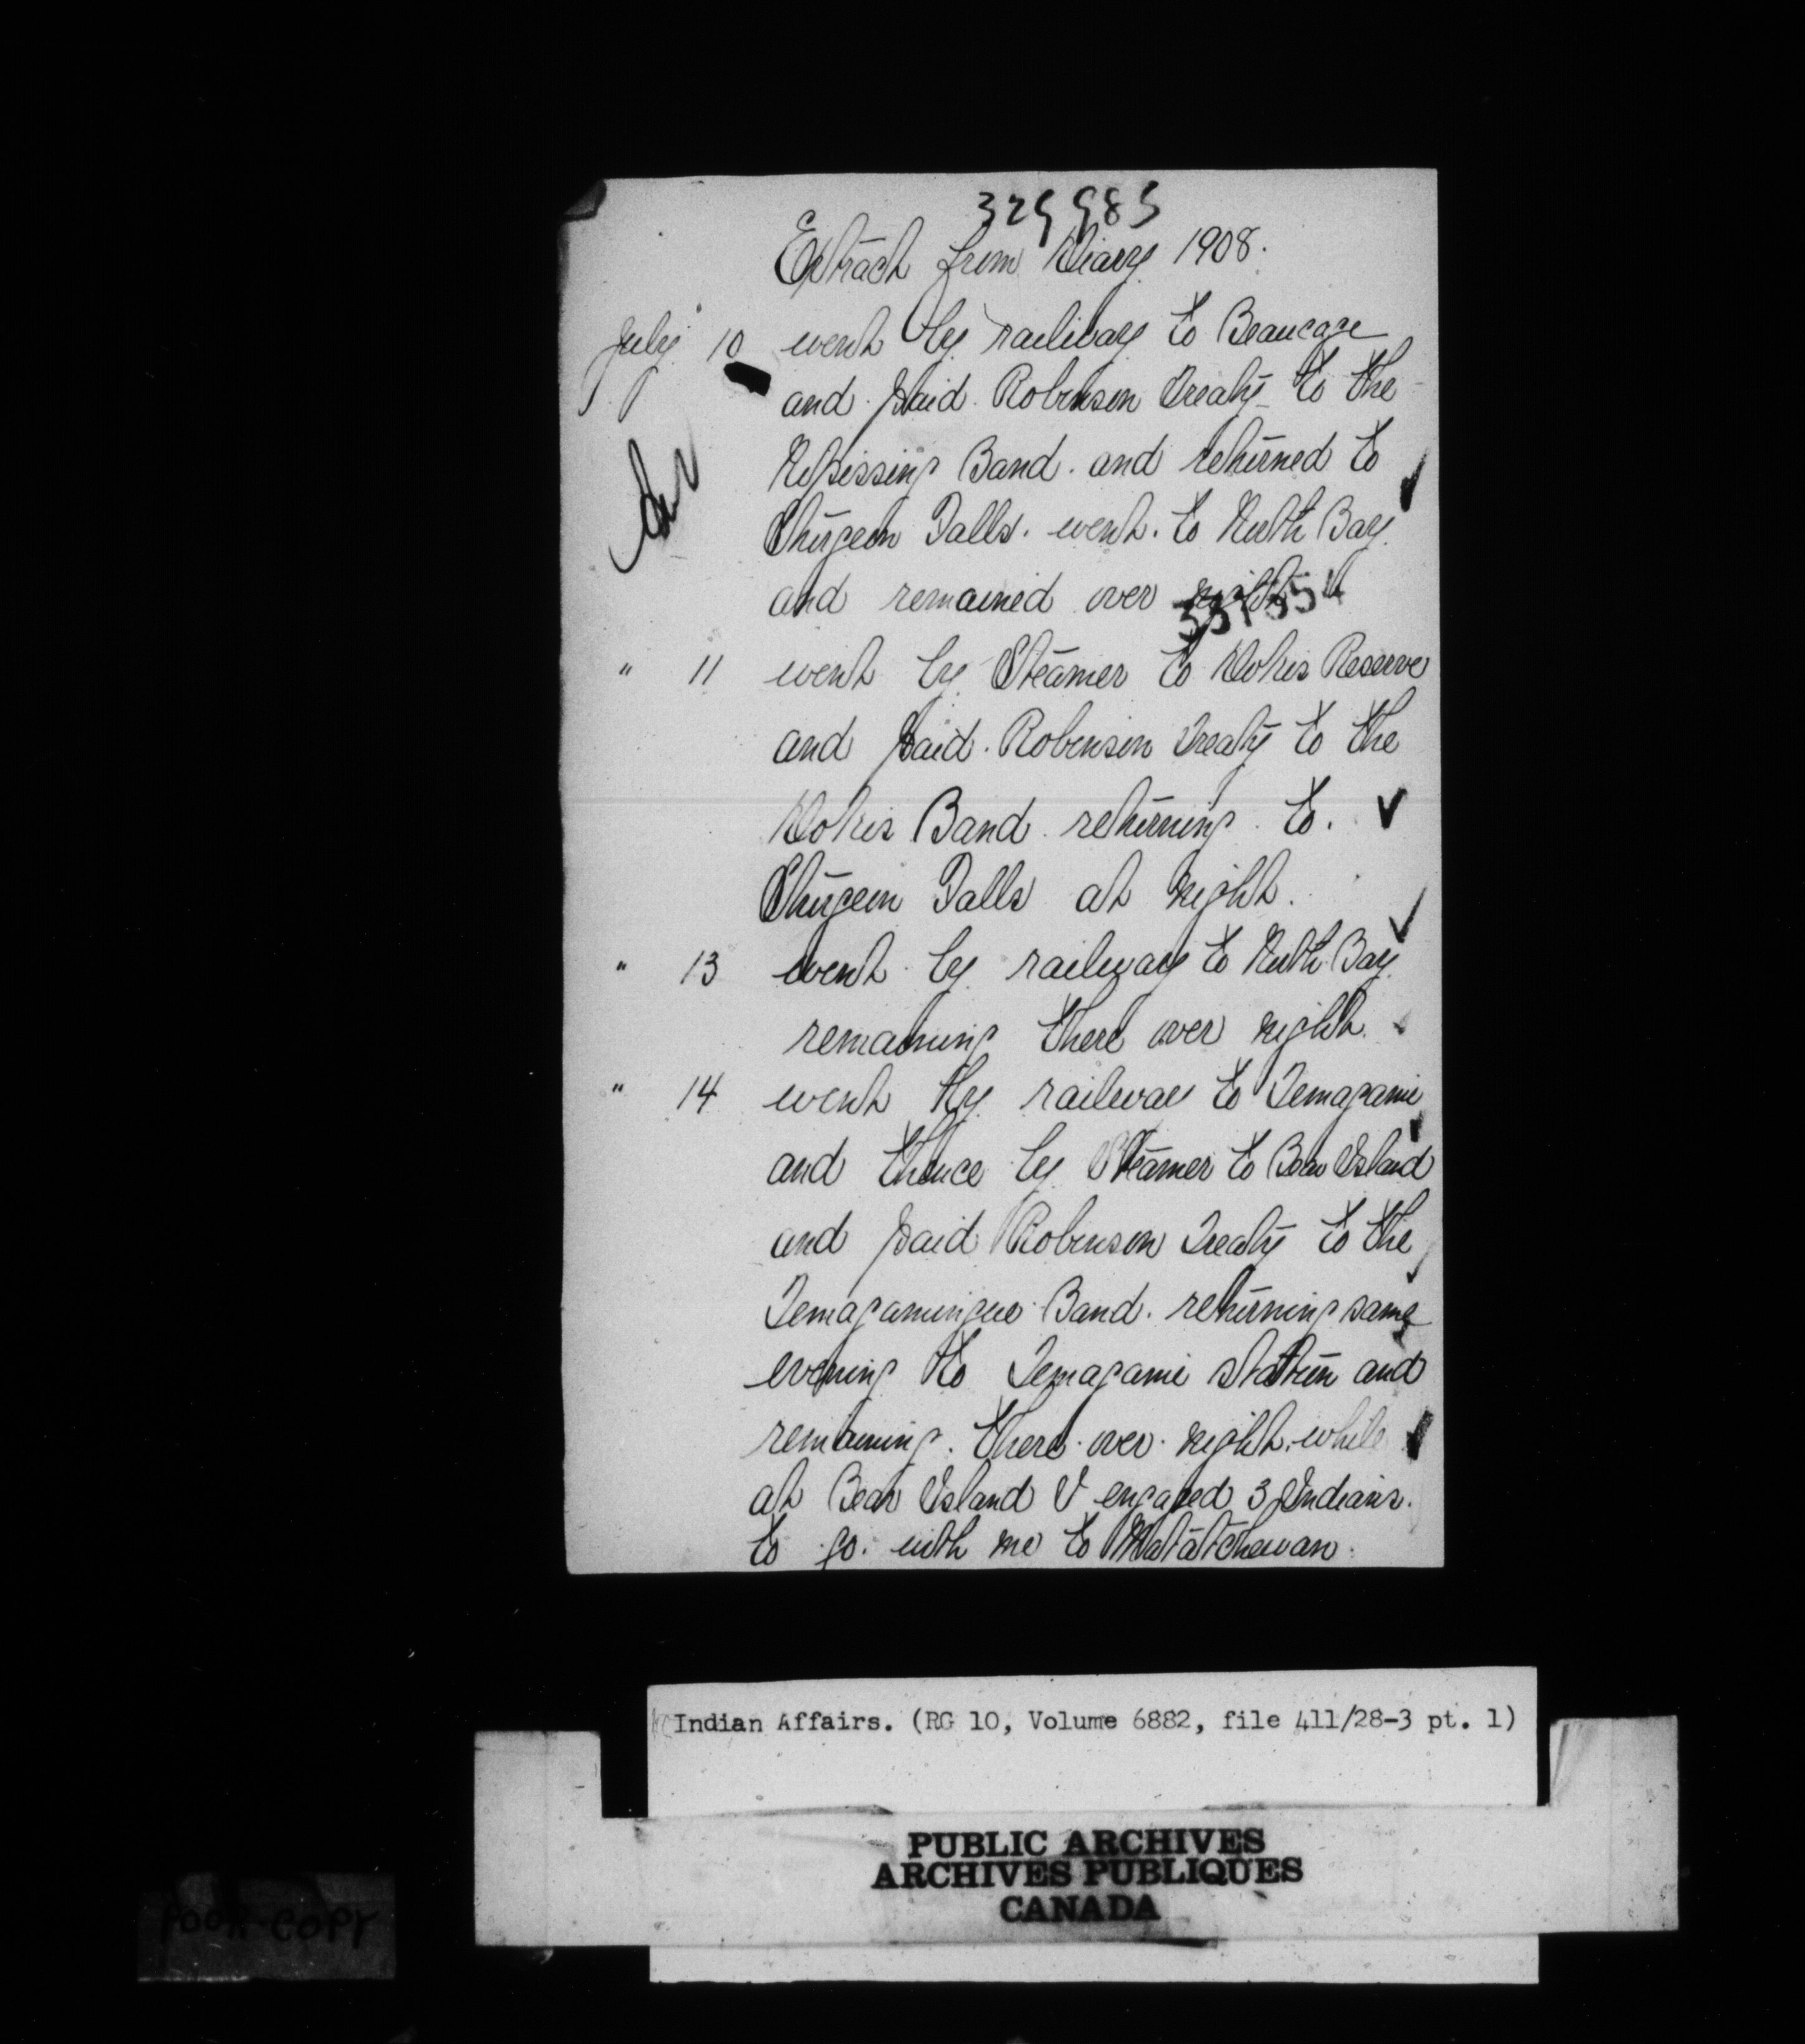 329983
Extract from Diary 1908.
July 10 went by railway to Beaucage
and paid Robinson Treaty to the
Nipissing Band. and returned to
Sturgeon Falls. went. to North Bay
and remained over night
" 11 went by Steamer to Dokis Reserve
and paid. Robinson Treaty to the
Dokis Band returning to.
Sturgeon Falls at night.
" 13 went by railway to North Bay
remaining there over night.
" 14 went by railway to Temagami
and thence by Steamer to Bear Island
and paid Robinson Treaty to the
Temagamingue Band. returning same
evening to Temagami station and
remaining. there over night. while
at Bear Island I engaged 3 Indians.
to go. with me to Matatchewan.
Indian Affairs. (RG 10, Volume 6882, file 411/28-3 pt. 1)
PUBLIC ARCHIVES
ARCHIVES PUBLIQUES
CANADA
POOR COPY